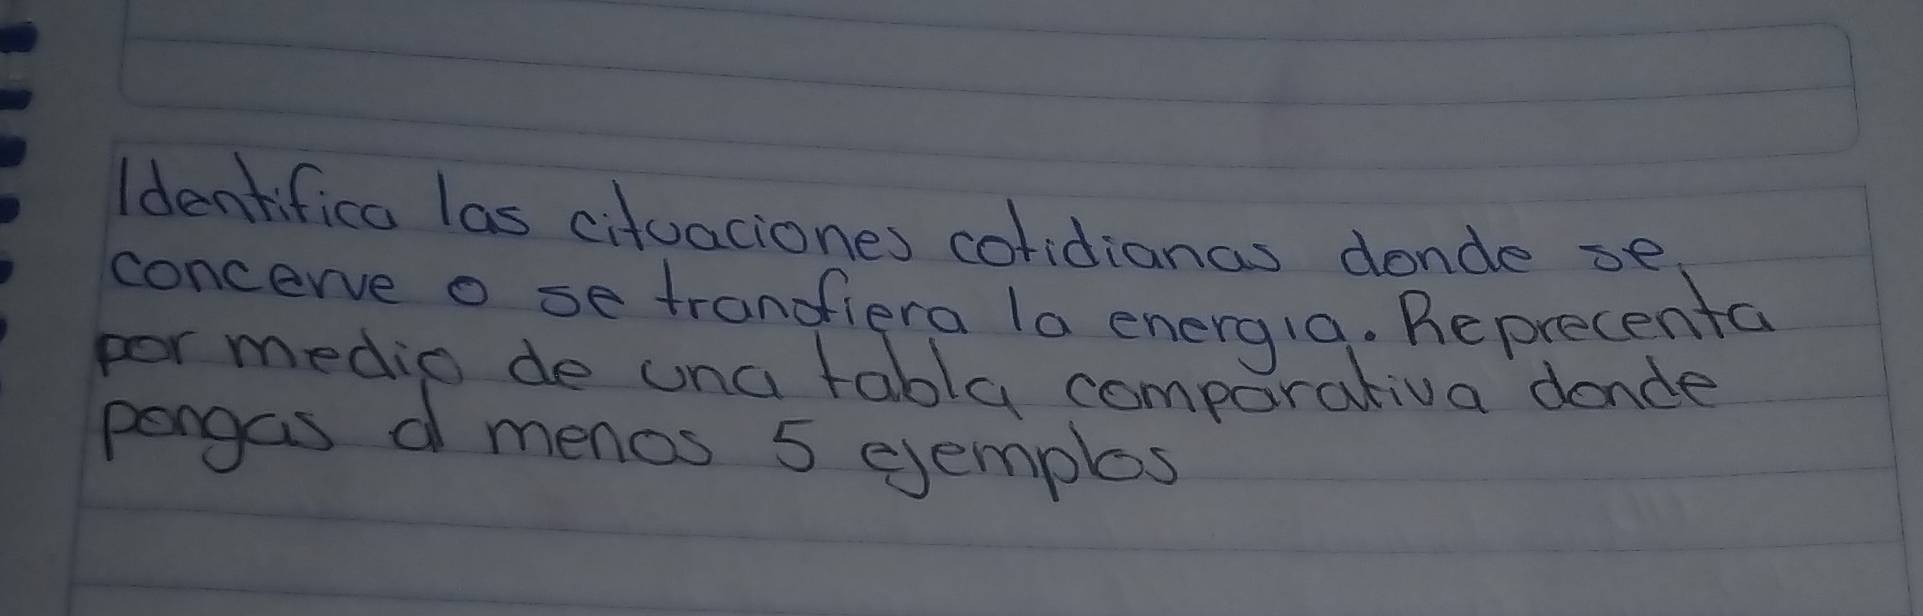 Identifica las cituaciones cotidianas donde se
concerve o se transfiera la energia. Reprecenta
por medio de una tabla comparativa donde
pongas al menos 5 ejemplos